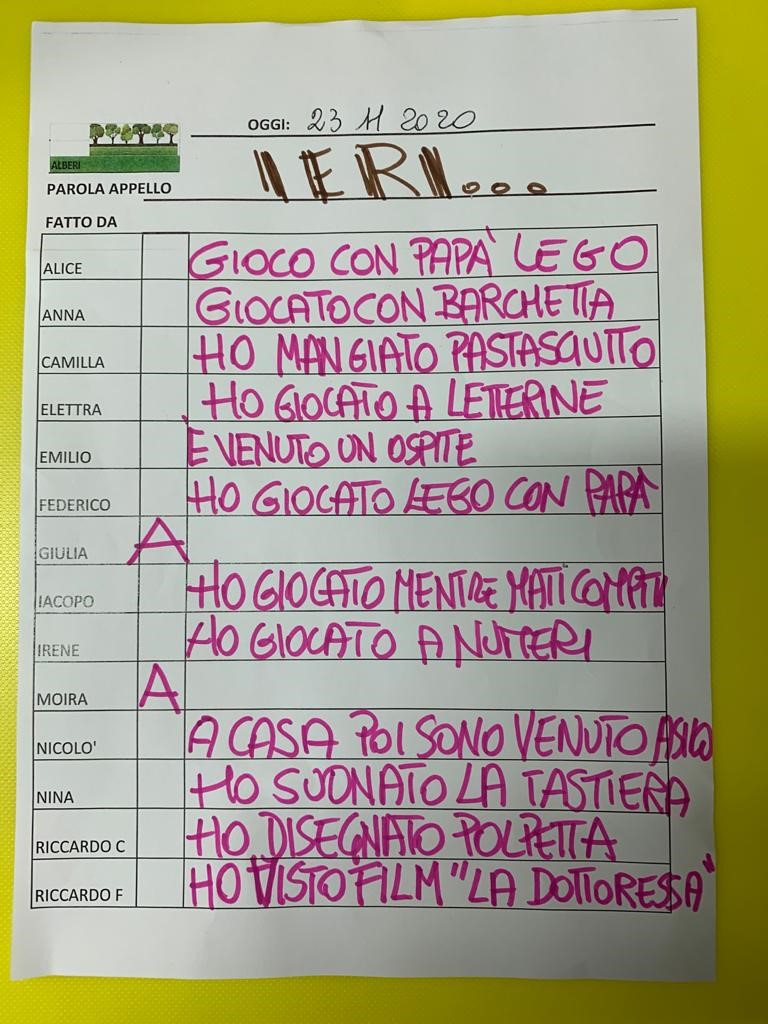 OGGI: 23 11 2020
ALBERI
PAROLA APPELLO IERI...
FATTO DA
ALICE GIOCO CON PAPÀ LEGO
ANNA GIOCATO CON BARCHETTA
CAMILLA HO MANGIATO PASTASCIUTTO
ELETTRA HO GIOCATO A LETTERINE
EMILIO È VENUTO UN OSPITE
FEDERICO HO GIOCATO LEGO CON PAPÀ
GIULIA A
IACOPO HO GIOCATO MENTRE MATI COMPITI
IRENE HO GIOCATO A NUMERI
MOIRA A
NICOLO' A CASA POI SONO VENUTO ASILO
NINA HO SUONATO LA TASTIERA
RICCARDO C HO DISEGNATO POLPETTA
RICCARDO F HO VISTO FILM "LA DOTTORESSA"